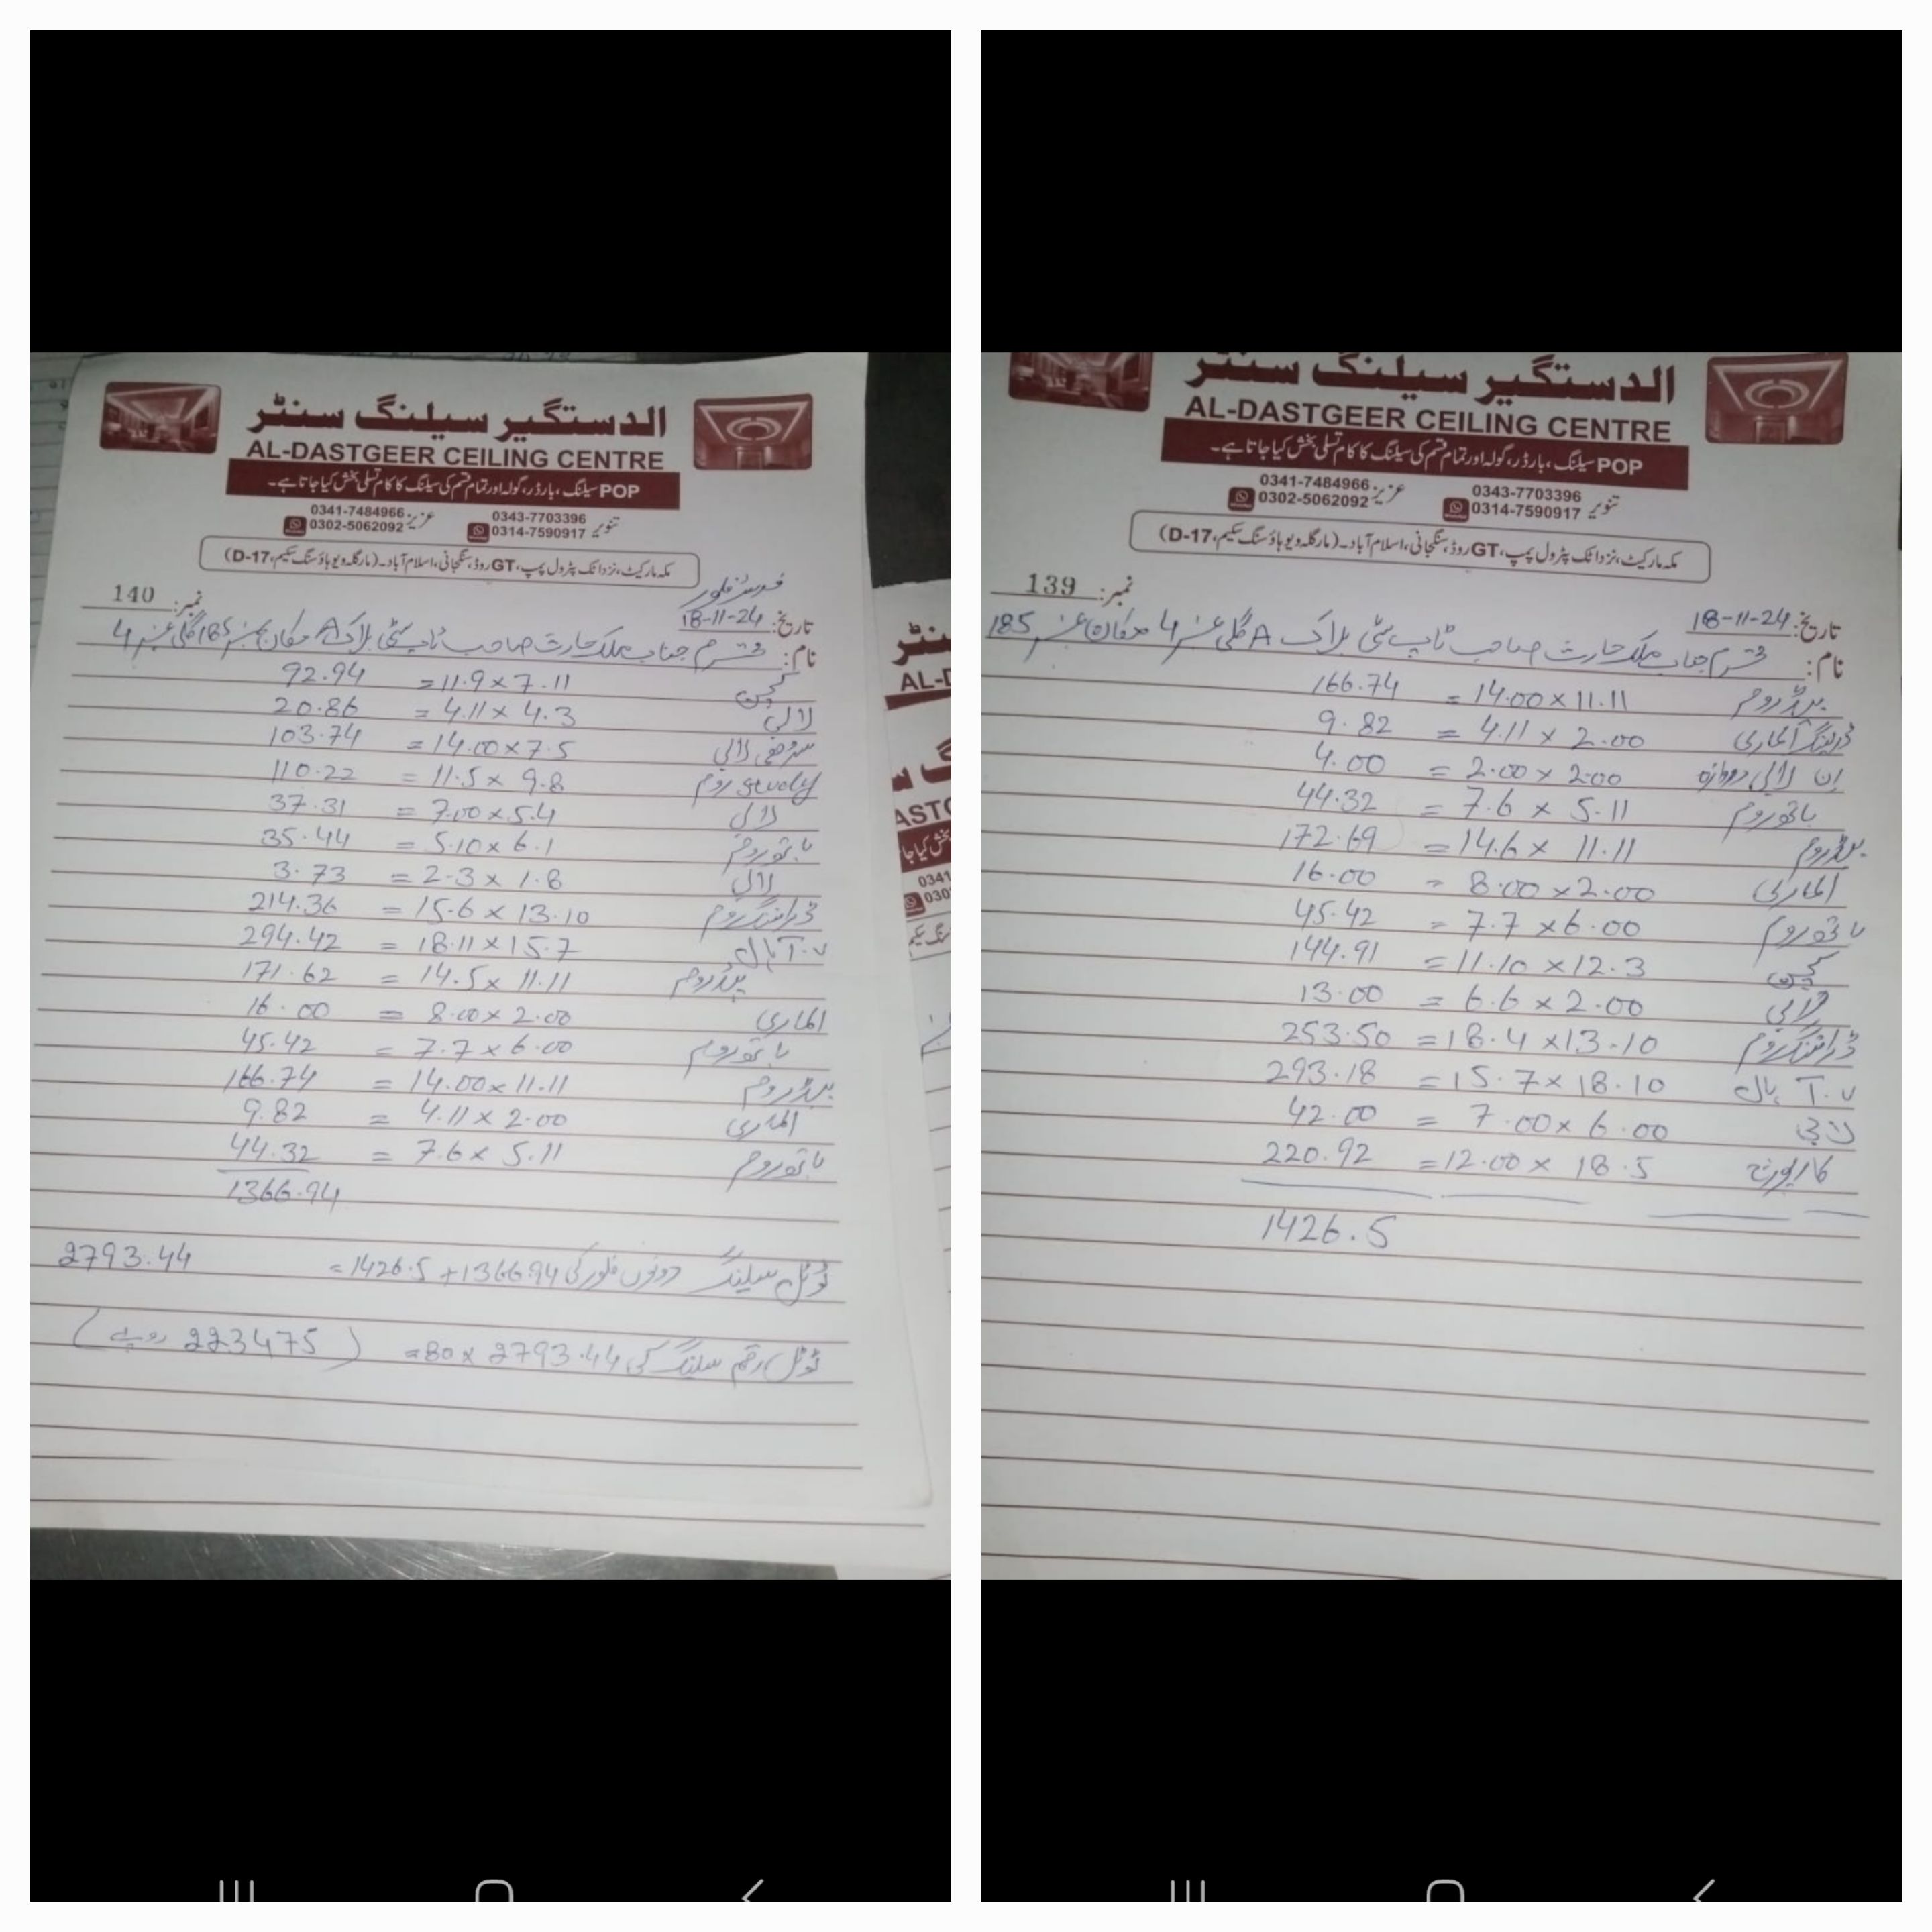 الدستگیر سیلنگ سنٹر
AL-DASTGEER CEILING CENTRE
POP سیلنگ، بارڈر، گولہ اور تمام قسم کی سیلنگ کا کام تسلی بخش کیا جاتا ہے۔
تنویر 0343-7703396 0314-7590917 عزیز 0341-7484966 0302-5062092
مکہ مارکیٹ، نزد اٹک پٹرول پمپ، GT روڈ، سنگجانی، اسلام آباد۔ (مارگلہ ویو ہاؤسنگ سکیم، D-17)
فرسٹ فلور
تاریخ: 18-11-24 نمبر: 140
نام: محترم جناب ملک حارث صاحب ٹاپ سٹی بلاک A مکان نمبر 185 گلی نمبر 4
کچن 11.9 x 7.11 = 92.94
لابی 4.11 x 4.3 = 20.86
لابی 14.00 x 7.5 = 103.74
study روم 11.5 x 9.8 = 110.22
لابی 7.00 x 5.4 = 37.31
باتھ روم 5.10 x 6.1 = 35.44
لابی 2.3 x 1.8 = 3.73
ڈرائنگ روم 15.6 x 13.10 = 214.36
T.V ہال 18.11 x 15.7 = 294.42
بیڈ روم 14.5 x 11.11 = 171.62
الماری 8.00 x 2.00 = 16.00
باتھ روم 7.7 x 6.00 = 45.42
بیڈ روم 14.00 x 11.11 = 166.74
الماری 4.11 x 2.00 = 9.82
باتھ روم 7.6 x 5.11 = 44.32
1366.94
ٹوٹل سیلنگ دونوں فلور کی 1366.94 + 1426.5 = 2793.44
ٹوٹل رقم سیلنگ کی 2793.44 x 80 = (223475 روپے)
الدستگیر سیلنگ سنٹر
AL-DASTGEER CEILING CENTRE
POP سیلنگ، بارڈر، گولہ اور تمام قسم کی سیلنگ کا کام تسلی بخش کیا جاتا ہے۔
تنویر 0343-7703396 0314-7590917 عزیز 0341-7484966 0302-5062092
مکہ مارکیٹ، نزد اٹک پٹرول پمپ، GT روڈ، سنگجانی، اسلام آباد۔ (مارگلہ ویو ہاؤسنگ سکیم، D-17)
تاریخ: 18-11-24 نمبر: 139
نام: محترم جناب ملک حارث صاحب ٹاپ سٹی بلاک A گلی نمبر 4 مکان نمبر 185
بیڈ روم 14.00 x 11.11 = 166.74
ڈریسنگ الماری 4.11 x 2.00 = 9.82
ان لابی دروازہ 2.00 x 2.00 = 4.00
باتھ روم 7.6 x 5.11 = 44.32
بیڈ روم 14.6 x 11.11 = 172.69
الماری 8.00 x 2.00 = 16.00
باتھ روم 7.7 x 6.00 = 45.42
کچن 11.10 x 12.3 = 144.91
6.6 x 2.00 = 13.00
ڈرائنگ روم 18.4 x 13.10 = 253.50
T.V ہال 15.7 x 18.10 = 293.18
7.00 x 6.00 = 42.00
کار پورچ 12.00 x 18.5 = 220.92
1426.5